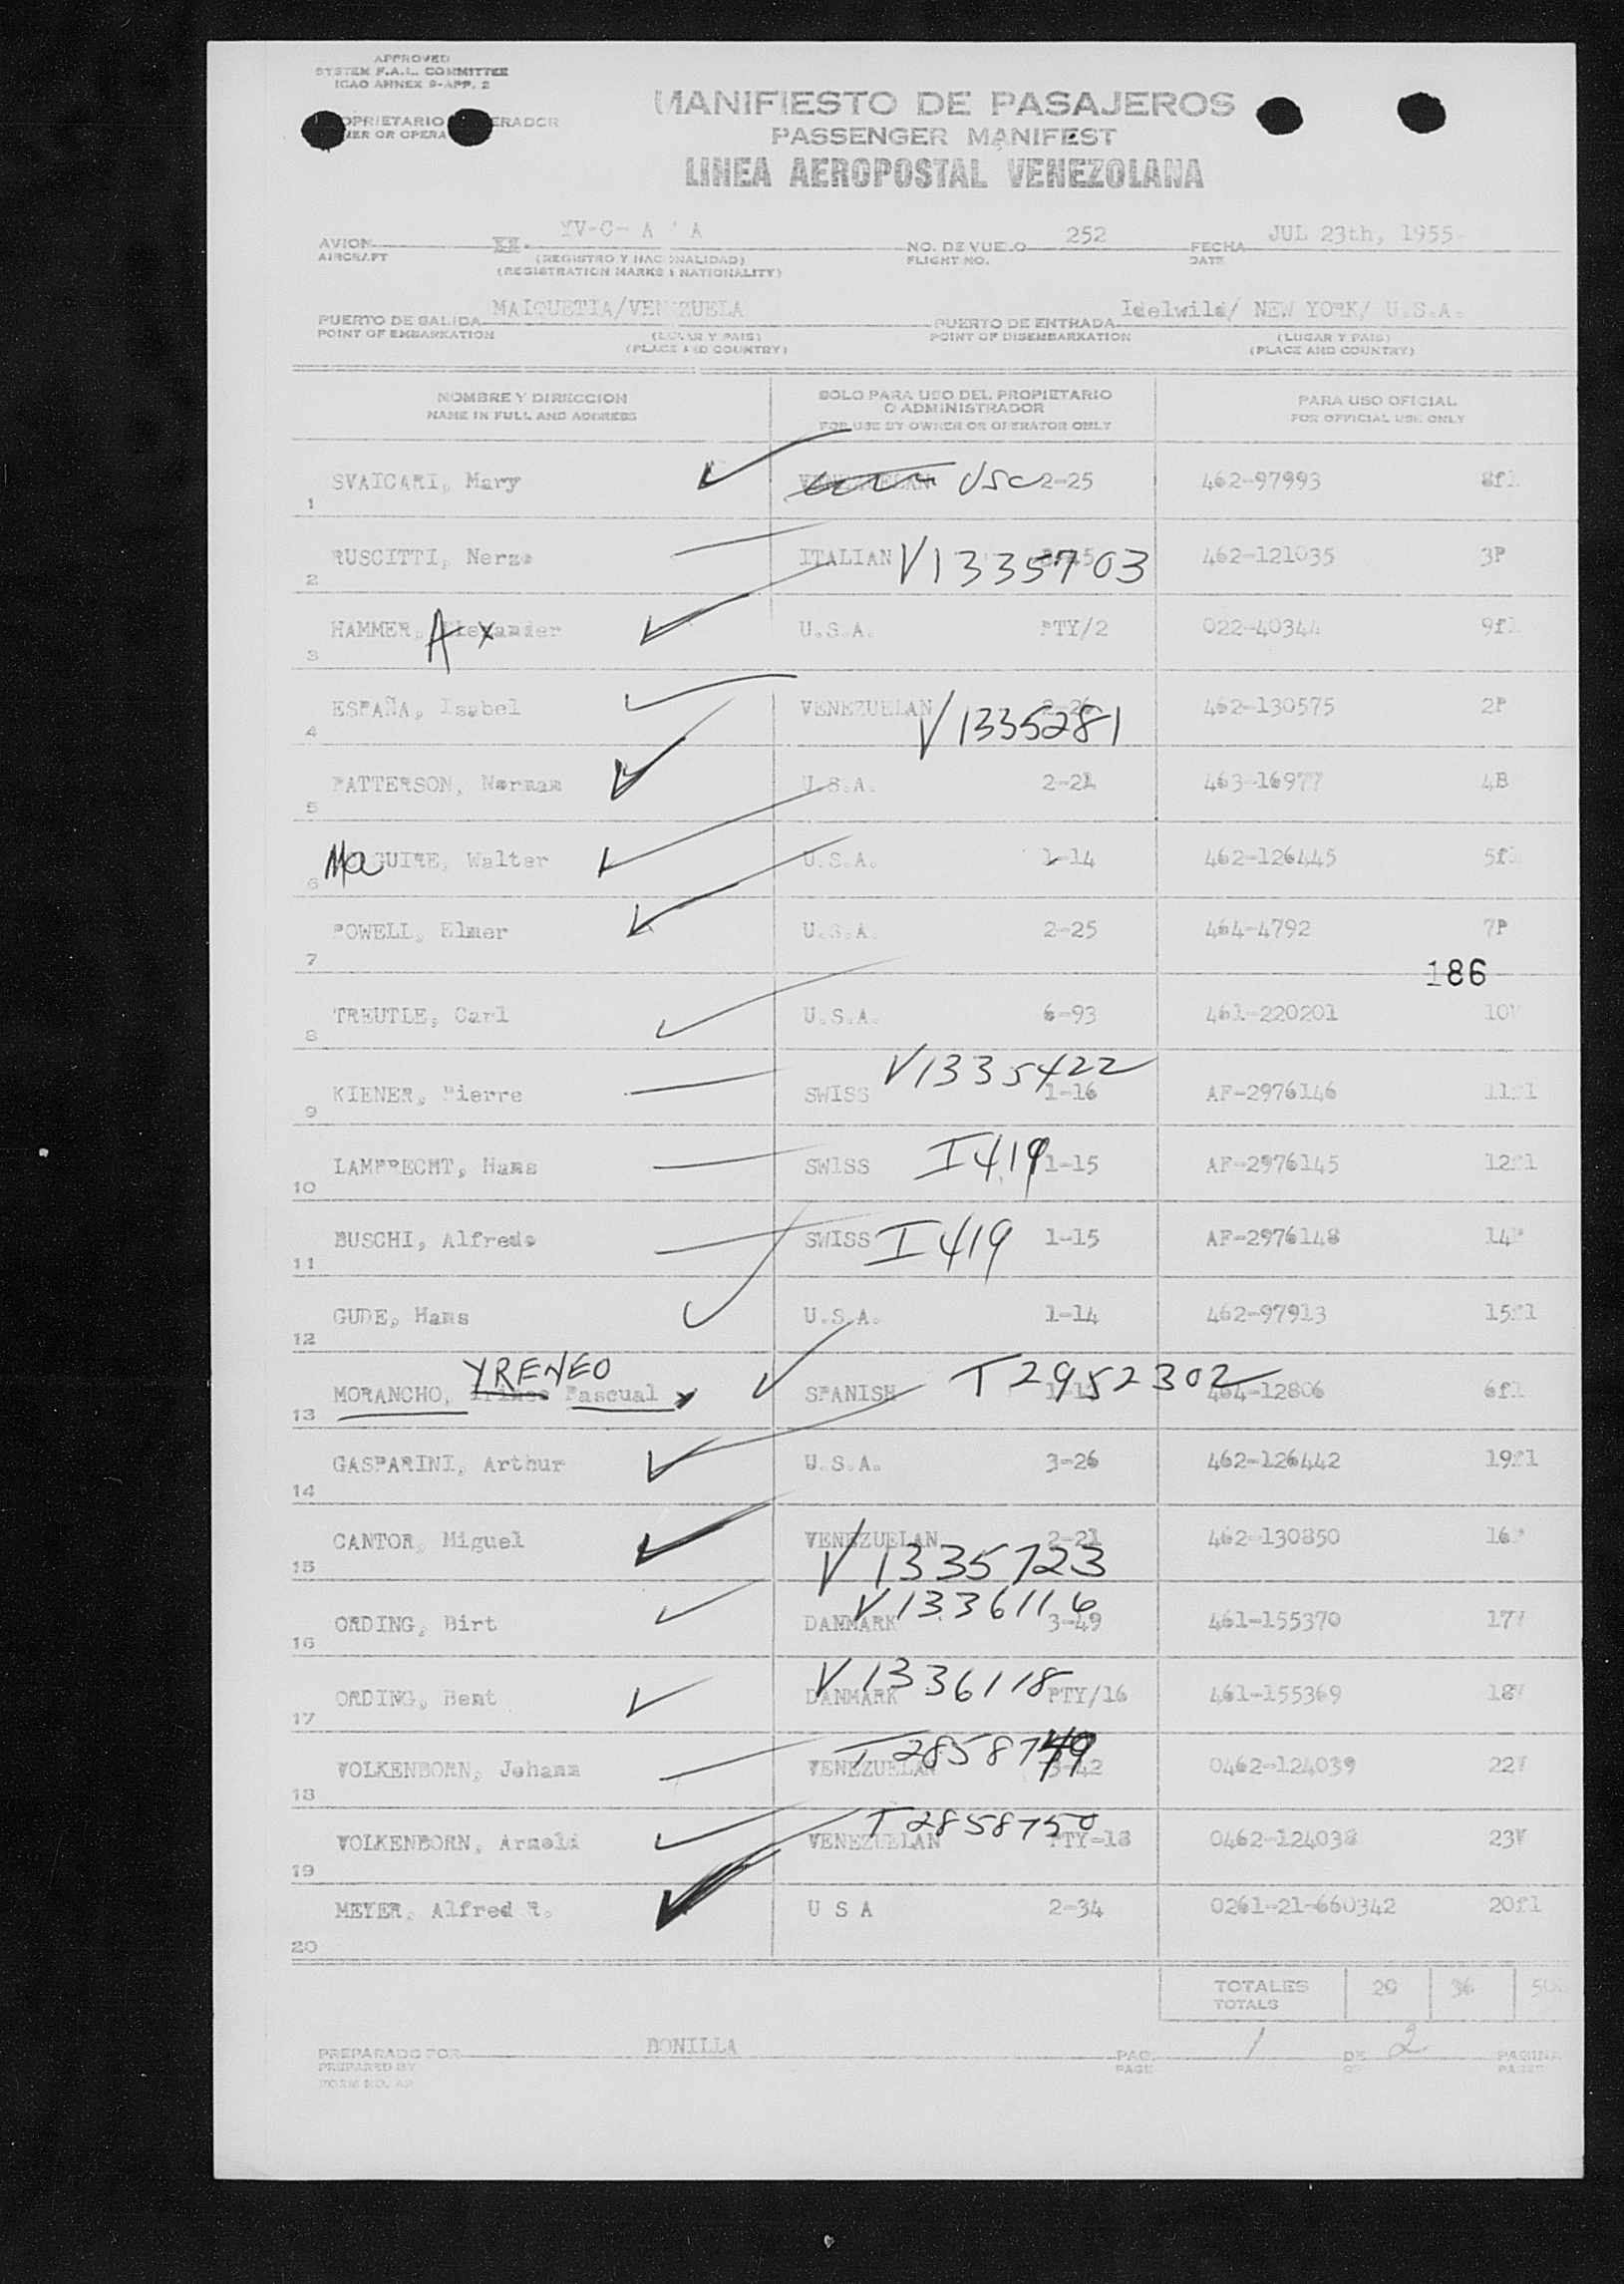 APPROVED
SYSTEM F.A.L. COMMITTEE
ICAO ANNEX 9-APP. 2
OPRIETARIO ERADOR
NER OR OPERA
MANIFIESTO DE PASAJEROS
PASSENGER MANIFEST
LINEA AEROPOSTAL VENEZOLANA
YV-C- A A
AVION NO. DE VUELO 252 FECHA JUL 23th, 1955
AIRCRAFT (REGISTRO Y NACIONALIDAD) FLIGHT NO. DATE
(REGISTRATION MARKS & NATIONALITY)
PUERTO DE SALIDA MAIQUETIA/VENEZUELA PUERTO DE ENTRADA Idelwild/ NEW YORK/ U.S.A.
POINT OF EMBARKATION (LUGAR Y PAIS) POINT OF DISEMBARKATION (LUGAR Y PAIS)
(PLACE AND COUNTRY) (PLACE AND COUNTRY)
NOMBRE Y DIRECCION SOLO PARA USO DEL PROPIETARIO PARA USO OFICIAL
NAME IN FULL AND ADDRESS O ADMINISTRADOR FOR OFFICIAL USE ONLY
FOR USE BY OWNER OR OPERATOR ONLY
1 SVAICARI, Mary VENEZUELAN USC 2-25 462-97993 8fl
2 RUSCITTI, ITALIAN V1335703 462-121035 3P
3 HAMMER, Alexander A X U.S.A. PTY/2 022-40344 9fl
4 ESPAÑA, Isabel VENEZUELAN 2-26 V1335281 462-130575 2P
5 PATTERSON, Norman U.S.A. 2-21 463-16977 4B
6 MaGUIRE, Walter U.S.A. 1-14 462-126445 5fl
7 POWELL, Elmer U.S.A. 2-25 464-4792 7P
186
8 TREUTLE, Carl U.S.A. 6-93 461-220201 10V
9 KIENER, Pierre SWISS V1335422 1-16 AF-2976146 11fl
10 LAMPRECHT, Hans SWISS I419 1-15 AF-2976145 12fl
11 BUSCHI, Alfredo SWISS I419 1-15 AF-2976148 14P
12 GUDE, Hans U.S.A. 1-14 462-97913 15fl
YRENEO
13 MORANCHO, Pascual x SPANISH T2952302 464-12806 6fl
14 GASPARINI, Arthur U.S.A. 3-26 462-126442 19fl
15 CANTOR, Miguel VENEZUELAN 2-21 V1335723 462-130850 16P
16 ORDING, Birt DANMARK V1336116 3-49 461-155370 17V
17 ORDING, Bent DANMARK V1336118 PTY/16 461-155369 18V
18 VOLKENBORN, Johann VENEZUELAN T2858749 3-42 0462-124039 22V
19 VOLKENBORN, Arnold VENEZUELAN T2858750 PTY-18 0462-124038 23V
20 MEYER, Alfred R. U S A 2-34 0261-21-660342 20fl
TOTALES 20 36
TOTALS
PREPARADO POR BONILLA PAG. 1 DE 2 PAGINAS
PREPARED BY PAGE OF PAGES
FORM NO.